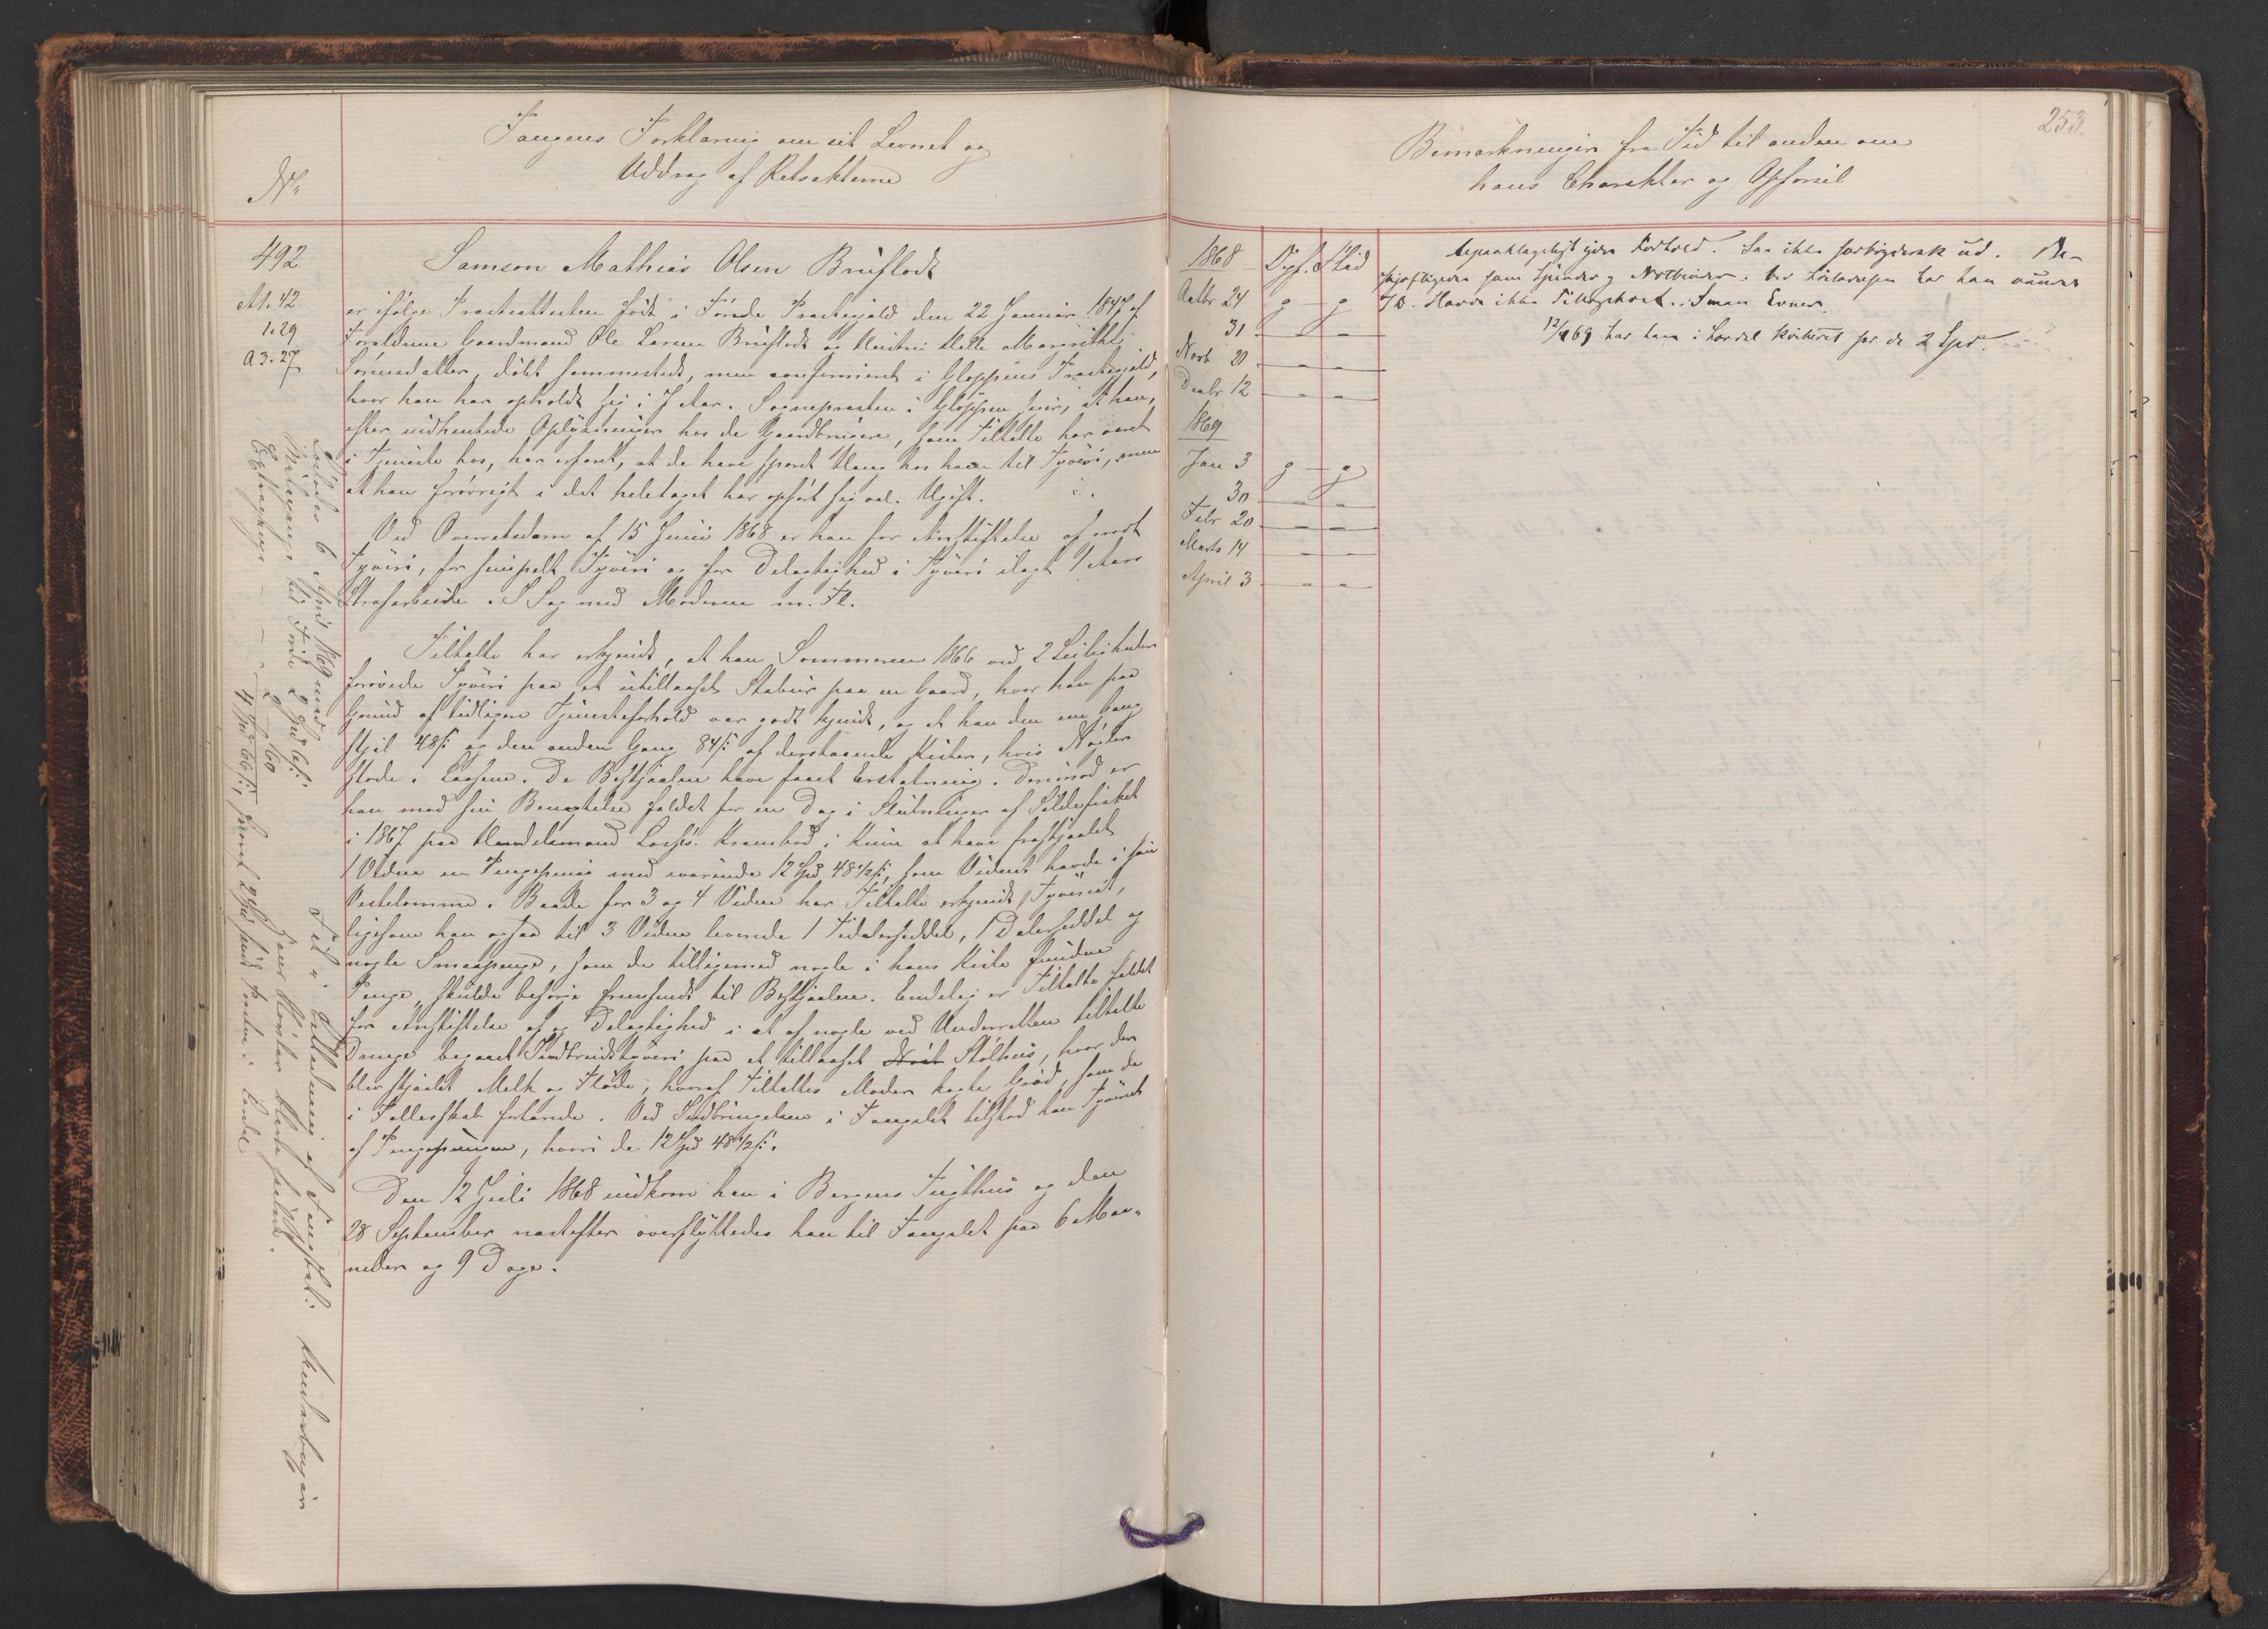 Fangens Forklaring om sit Levnet og
Uddrag af Retsakterne
No
492
M. 42
1.29
A 3. 27
Samson Mathias Olsen Bruflodt
er ifølge Præsteattesten født i Førde Præstegjæld den 22 Januar 1847 af
Forældrene Gaardmand Ole Larsen Bruflodt og Hustru Mette Marie
døbt sammesteds, men confirmeret i Gloppens Præstegjæld,
hvor han har opholdt sig i 7 Aar. Sognepræsten i Gloppen at han,
efter indhentede Oplysninger hos de Gaardbrugere, som Tiltalte har været
i Tjeneste hos, har erfaret, at de have sporet Hang hos ham til Tyveri, men
at han forøvrigt i det heletaget har opført sig vel. Ugift.
Ved Overretsdom af 15 Juni 1868 er han for Anstiftelse af groft
Tyveri, for simpelt Tyveri og for Delagtighed i Tyveri ilagt 1 Aars
Strafarbeide. I Sag med Moderen m. Fl.
Tiltalte har erkjendt, at han Sommeren 1866 ved 2 Leiligheder
forøvede Tyveri paa et utillaaset Stabur paa en Gaard, hvor han paa
Grund af tidligere Tjenesteforhold var godt kjendt, og at han den ene Gang
stjal 48 ß og den anden Gang 84 ß af derstaaende Kister, hvis Nøgler
stode i Laasene. De Bestjaalne have faaet Erstatning. Derimod er
han mod sin Benægtelse fældet for en Dag i Slutningen af Sildefisket
i 1867 paa Handelsmand Krambod i Kinn at have frastjaalet
1 Vidne en Pengepung med iværende 12 Spd 48 1/2 ß, som Vidnet havde i sin
Vestelomme. Baade for 3 og 4 Vidne har Tiltalte erkjendt Tyveriet,
ligesom han ogsaa til 3 Vidne leverede 1 Tidalerseddel, 1 Dalerseddel og
nogle Smaapenge, som de tilligemed nogle i hans Kiste fundne
Penge, skulde besørge fremsendt til Bestjaalne. Endelig er Tiltalte fældet
for Anstiftelse af og Delagtighed i et af nogle ved Underretten tiltalte
Drenge begaaet Indbrudstyveri paa et tillaaset Stølhus, hvor der
blev stjaalet Melk og Fløde, hvoraf Tiltaltes Moder kogte Grød, som de
i Fællesskab fortærede. Ved Indbringelsen i Fængslet tilstod han Tyveriet
af Pengepungen, hvori de 12 Spd 48 1/2 ß.
Den 12 Juli 1868 indkom han i Bergens Tugthus og den
28 September næstefter overflyttedes han til Fængslet paa 6 Maa-
neder og 9 Dage.
Løslades 6 April 1869 med
Reisepenge til Førde 2 Spd 6 ß.
2 - 60
4 Spd 66 ß, hvoraf 2 Spd sendt Posten i Førde
253
Bemærkninger fra Tid til anden om
hans Charakter og Opførsel
1868
Opf. Flid
Octbr 24 g g
31 - -
Novb 21 - -
Decbr 12 - -
1869
Jan 3 g g
30 - -
Febr 20 - -
Marts 14 - -
April 3 - -
Upaaklageligt Forhold. Saa ikke forbrydersk ud. Be-
skjæftigedes som Spinder og Notbinder. Ved Løsladelsen har han
Havde ikke Smaa Evner.
12/4 69 har han i Lærdal kvitteret for de 2 Spd.